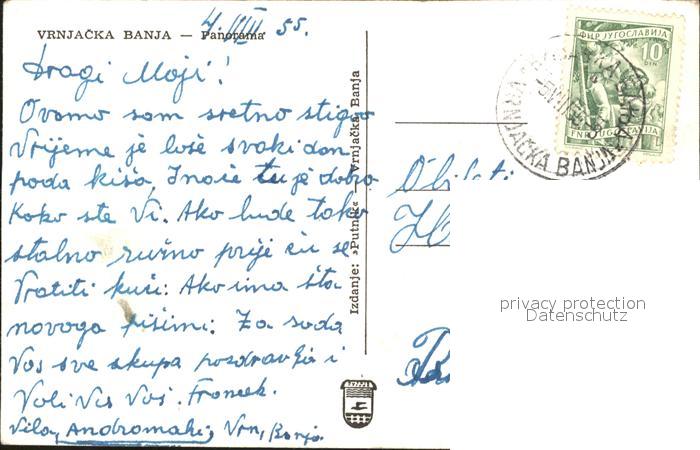 VRNJAČKA BANJA — Panorama
4. VIII 55.
Dragi Moji!
Ovamo sam sretno stigao
Vrijeme je loše svaki dan
pada kiša, Inače tu je dobro
Kako ste Vi. Ako bude tako
stalno ružno prije ću se
Vratiti kući. Ako ima šta
novoga pišimi. Za sada
Vas sve skupa pozdravlja i
Voli Vas Vaš. Francek.
Vila, Andromahi, Vrn, Banja.
Izdanje: »Putnik« — Vrnjačka Banja
Obitelj:
ФНР ЈУГОСЛАВИЈА
10
DIN
FNR JUGOSLAVIJA
VRNJAČKA BANJA
privacy protection
Datenschutz